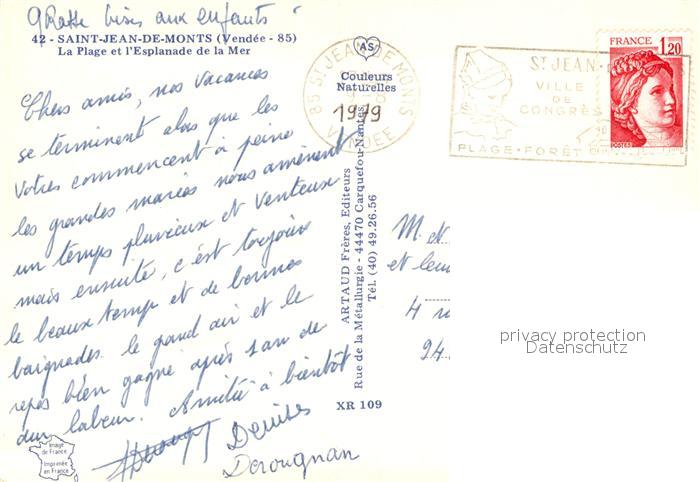 bises aux enfants
42 - SAINT-JEAN-DE-MONTS (Vendée - 85)
La Plage et l'Esplanade de la Mer
Chers amis, nos vacances
se terminent alors que les
votres commencent à peine
les grandes marées nous amènent
un temps pluvieux et venteux
mais ensuite, c'est toujours
le beau temps et de bonnes
baignades. le grand air et le
repos bien gagné après 1 an de
dur labeur. Amitié à bientôt
Denise
Derougnan
Image
de France
Imprimée
en France
AS
Couleurs
Naturelles
1979
85 ST JEAN DE MONTS
VENDEE
ARTAUD Frères, Editeurs
Rue de la Métallurgie - 44470 Carquefou-Nantes
Tél. (40) 49.26.56
XR 109
ST JEAN
VILLE
DE
CONGRÈS
PLAGE • FORÊT
FRANCE
1,20
POSTES
M. et
et leu
4
94
privacy protection
Datenschutz